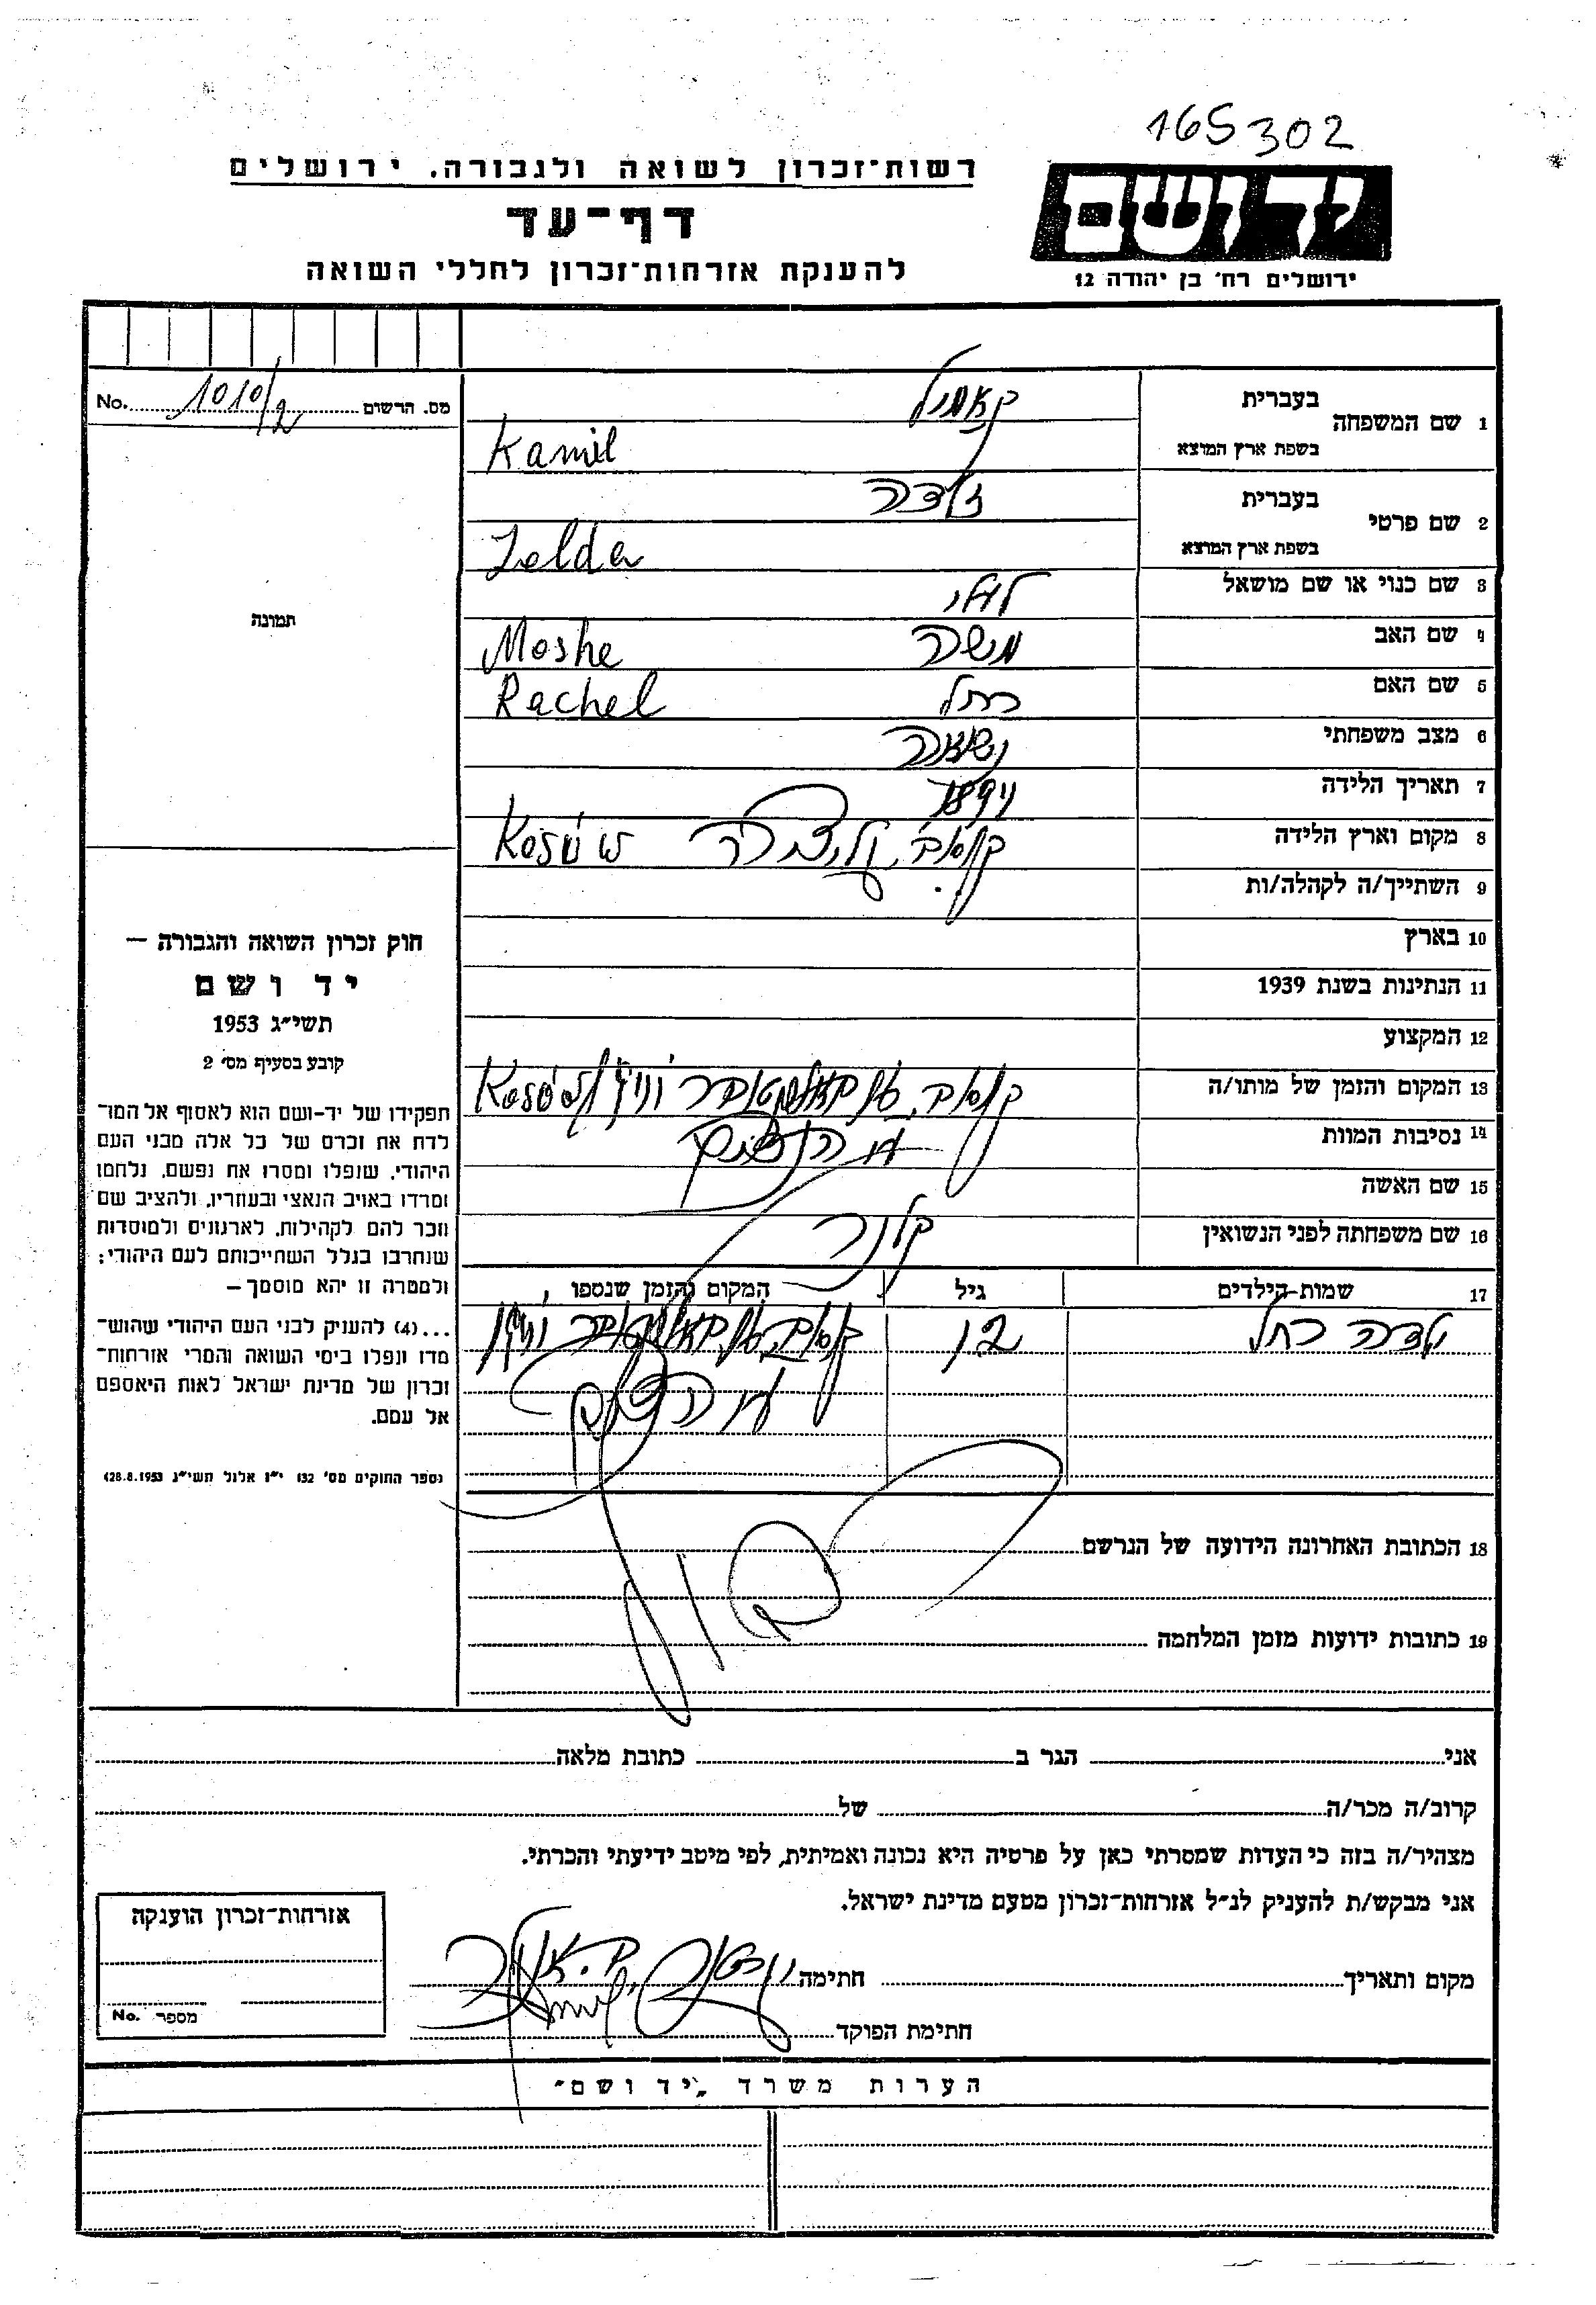 165302
רשות־זכרון לשואה ולגבורה. ירושלים
דף־עד
להענקת אזרחות־זכרון לחללי השואה
יד ושם
ירושלים רח׳ בן יהודה 12
מס. הרשום 1010/2 No.
1 שם המשפחה
בעברית קאמיל
בשפת ארץ המוצא Kamil
2 שם פרטי
בעברית זלדה
בשפת ארץ המוצא Zelda
3 שם כנוי או שם מושאל
4 שם האב משה Moshe
5 שם האם רחל Rachel
6 מצב משפחתי נשואה
7 תאריך הלידה
8 מקום וארץ הלידה קוסוב, גליציה Kosów
9 השתייך/ה לקהלה/ות
10 בארץ
11 הנתינות בשנת 1939
12 המקצוע
13 המקום והזמן של מותו/ה קוסוב, Kosów
14 נסיבות המוות
15 שם האשה
16 שם משפחתה לפני הנשואין
17 שמות־הילדים גיל המקום והזמן שנספו
רחל 12 קוסוב,
18 הכתובת האחרונה הידועה של הנרשם
19 כתובות ידועות מזמן המלחמה
תמונה
חוק זכרון השואה והגבורה —
יד ושם
תשי״ג 1953
קובע בסעיף מס׳ 2
תפקידו של יד-ושם הוא לאסוף אל המו־
לדת את זכרם של כל אלה מבני העם
היהודי, שנפלו ומסרו את נפשם, נלחמו
ומרדו באויב הנאצי ובעוזריו, ולהציב שם
וזכר להם לקהילות, לארגונים ולמוסדות
שנחרבו בגלל השתייכותם לעם היהודי;
ולמטרה זו יהא מוסמך —
...(4) להעניק לבני העם היהודי שהוש־
מדו ונפלו בימי השואה והמרי אזרחות־
זכרון של מדינת ישראל לאות היאספם
אל עמם.
(ספר החוקים מס׳ 132 י״ז אלול תשי״ג 28.8.1953)
אני הגר ב כתובת מלאה
קרוב/ה מכר/ה של
מצהיר/ה בזה כי העדות שמסרתי כאן על פרטיה היא נכונה ואמיתית, לפי מיטב ידיעתי והכרתי.
אני מבקש/ת להעניק לנ״ל אזרחות־זכרון מטעם מדינת ישראל.
מקום ותאריך חתימה
חתימת הפוקד
אזרחות־זכרון הוענקה
מספר No.
הערות משרד „יד ושם״